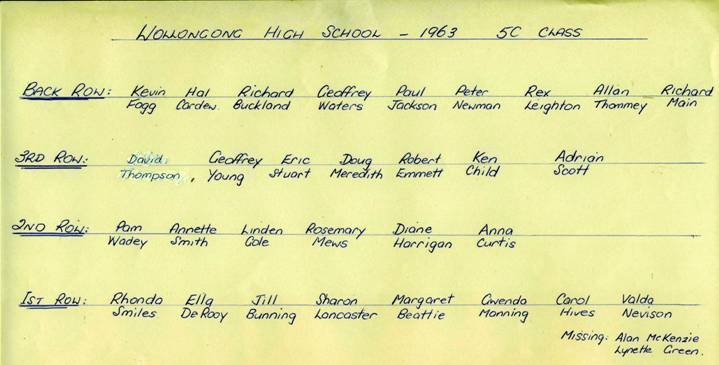 WOLLONGONG HIGH SCHOOL - 1963 5C CLASS
BACK ROW: Kevin Hal Richard Geoffrey Paul Peter Rex Allan Richard
Fogg Carden Buckland Waters Jackson Newman Leighton Thommey Main
3RD ROW: David Geoffrey Eric Doug Robert Ken Adrian
Thompson, Young Stuart Meredith Emmett Child Scott
2ND ROW: Pam Annette Linden Rosemary Diane Anna
Wadey Smith Cole Mews Harrigan Curtis
1ST ROW: Rhonda Ella Jill Sharon Margaret Gwenda Carol Valda
Smiles De Rooy Bunning Lancaster Beattie Manning Hives Nevison
Missing: Alan McKenzie
Lynette Green.